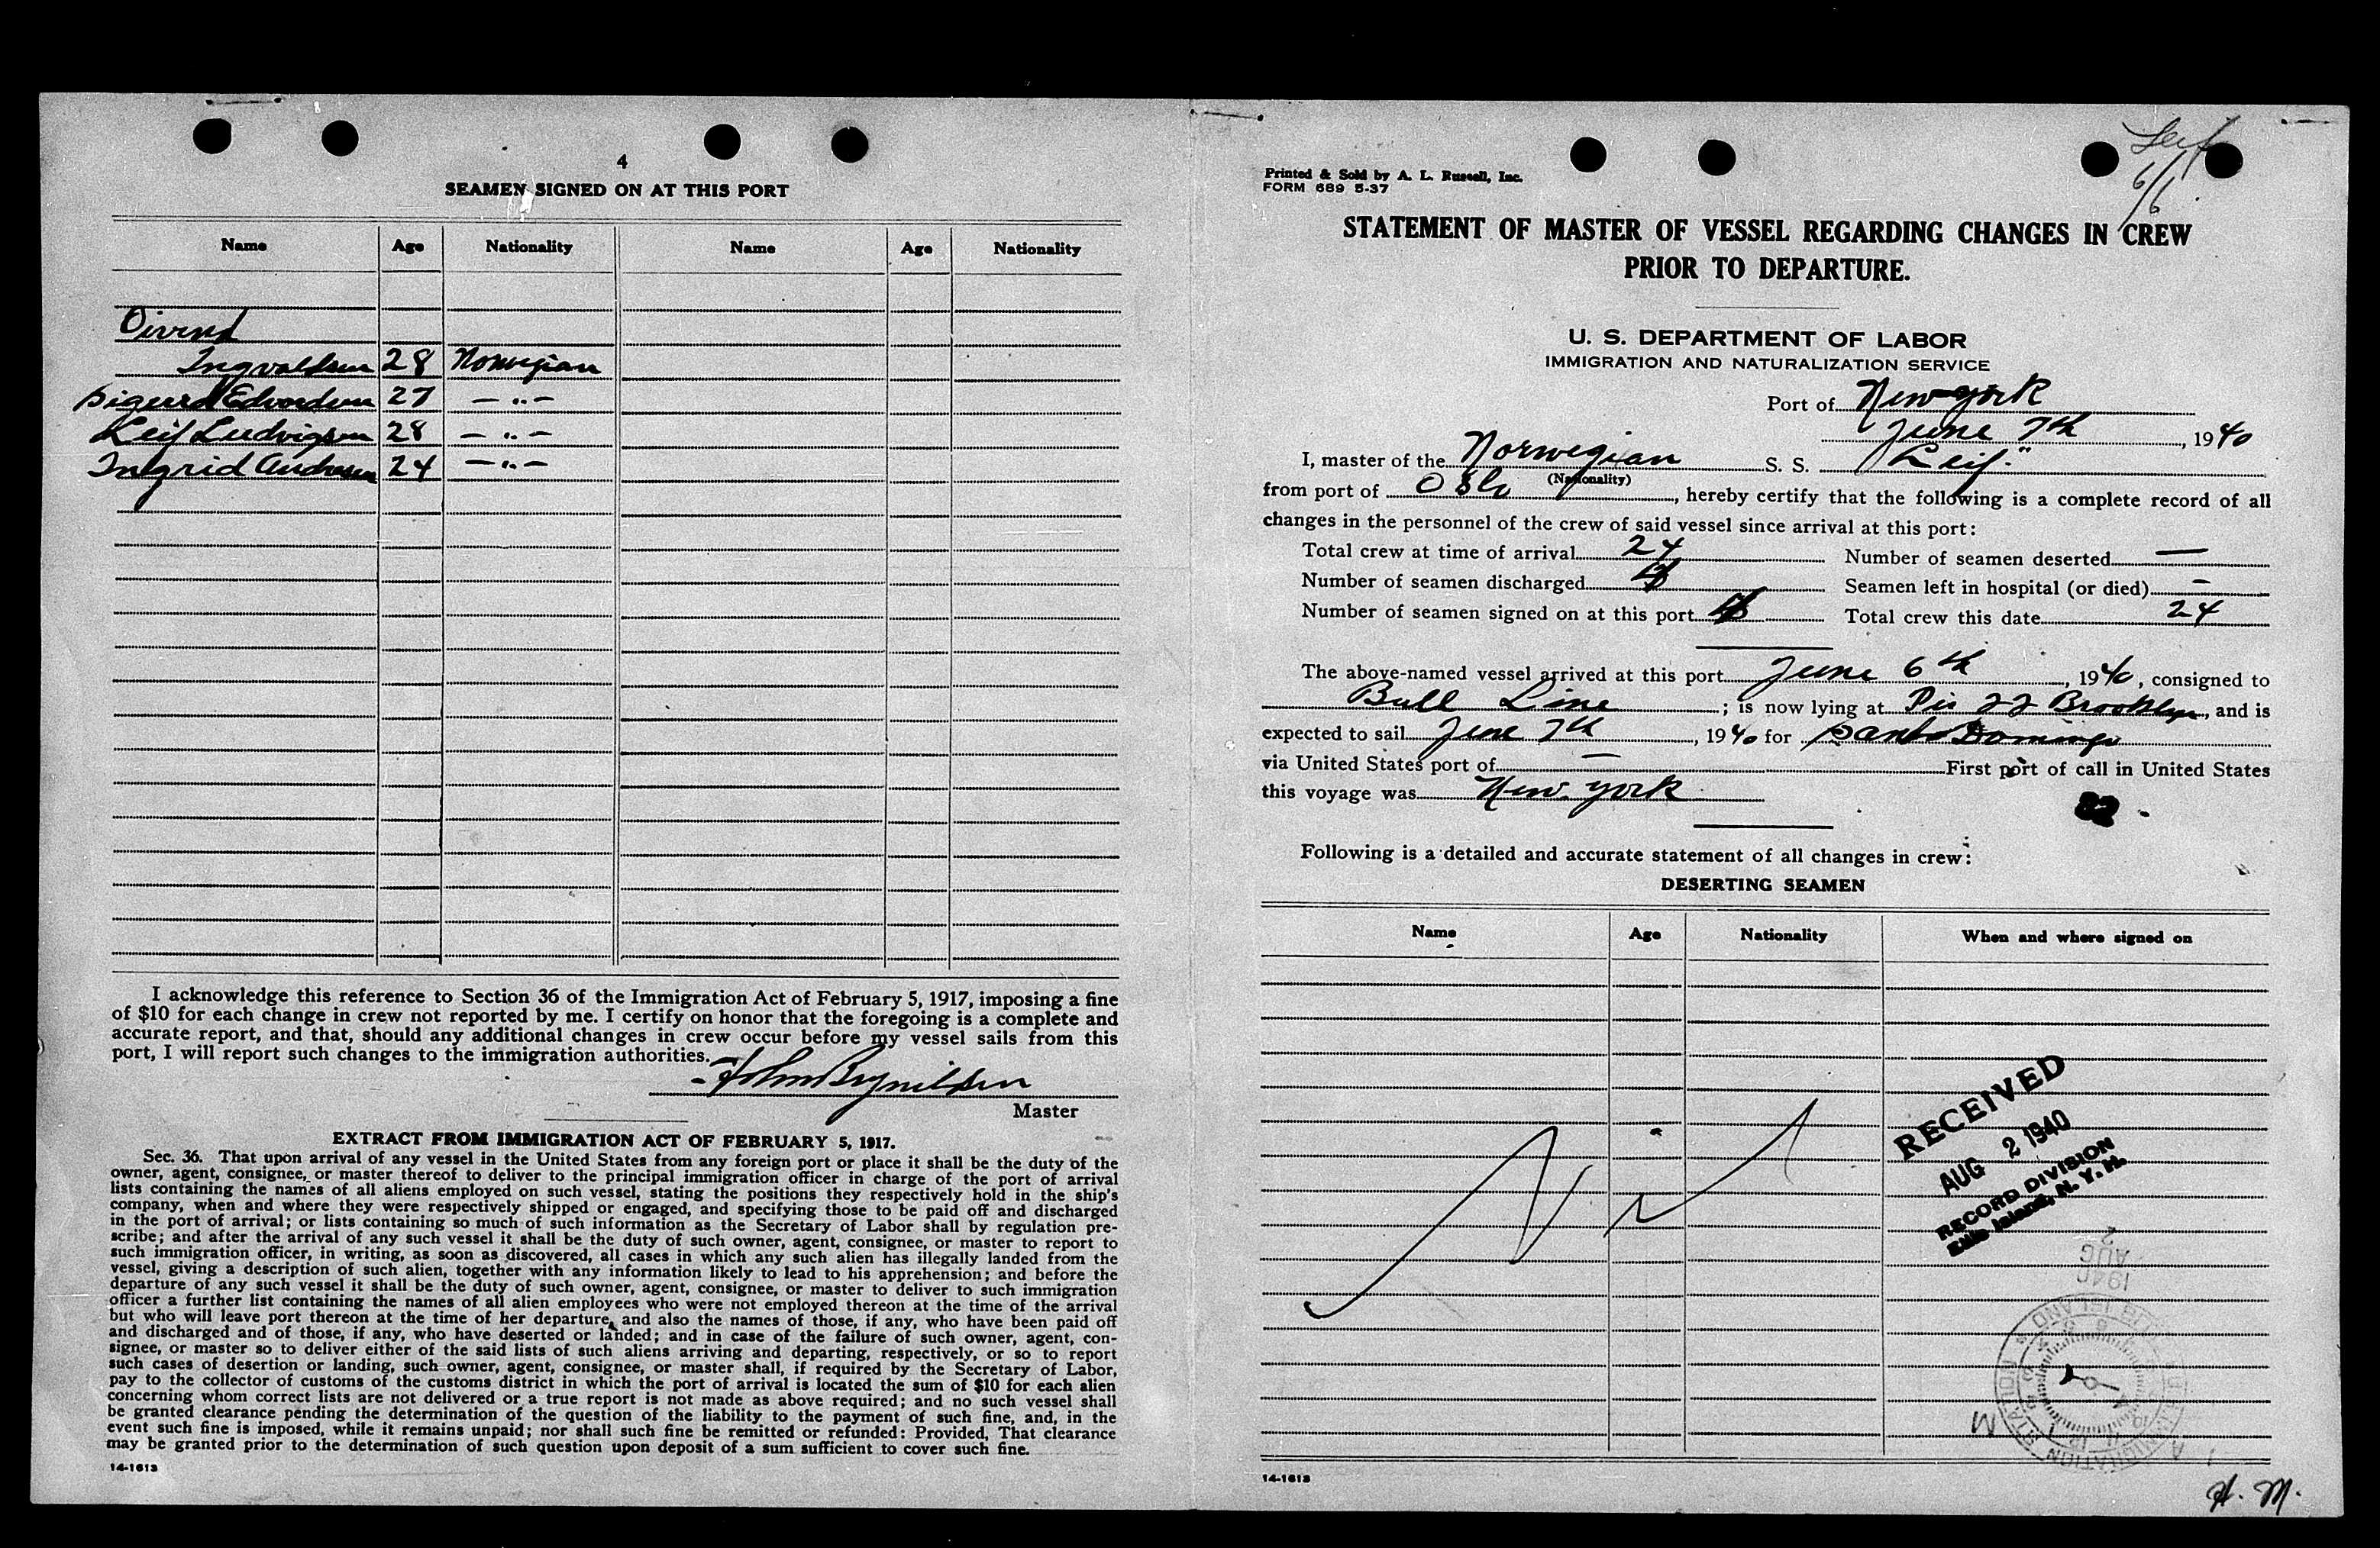 4
SEAMEN SIGNED ON AT THIS PORT
Name Age Nationality Name Age Nationality
Oivind
Ingvaldsen 28 Norwegian
Sigurd Edvardsen 27 — „ —
Leif Ludvigsen 28 — „ —
Ingrid Andresen 24 — „ —
I acknowledge this reference to Section 36 of the Immigration Act of February 5, 1917, imposing a fine
of $10 for each change in crew not reported by me. I certify on honor that the foregoing is a complete and
accurate report, and that, should any additional changes in crew occur before my vessel sails from this
port, I will report such changes to the immigration authorities.
John Brynildsen
Master
EXTRACT FROM IMMIGRATION ACT OF FEBRUARY 5, 1917.
Sec. 36. That upon arrival of any vessel in the United States from any foreign port or place it shall be the duty of the
owner, agent, consignee, or master thereof to deliver to the principal immigration officer in charge of the port of arrival
lists containing the names of all aliens employed on such vessel, stating the positions they respectively hold in the ship's
company, when and where they were respectively shipped or engaged, and specifying those to be paid off and discharged
in the port of arrival; or lists containing so much of such information as the Secretary of Labor shall by regulation pre-
scribe; and after the arrival of any such vessel it shall be the duty of such owner, agent, consignee, or master to report to
such immigration officer, in writing, as soon as discovered, all cases in which any such alien has illegally landed from the
vessel, giving a description of such alien, together with any information likely to lead to his apprehension; and before the
departure of any such vessel it shall be the duty of such owner, agent, consignee, or master to deliver to such immigration
officer a further list containing the names of all alien employees who were not employed thereon at the time of the arrival
but who will leave port thereon at the time of her departure, and also the names of those, if any, who have been paid off
and discharged and of those, if any, who have deserted or landed; and in case of the failure of such owner, agent, con-
signee, or master so to deliver either of the said lists of such aliens arriving and departing, respectively, or so to report
such cases of desertion or landing, such owner, agent, consignee, or master shall, if required by the Secretary of Labor,
pay to the collector of customs of the customs district in which the port of arrival is located the sum of $10 for each alien
concerning whom correct lists are not delivered or a true report is not made as above required; and no such vessel shall
be granted clearance pending the determination of the question of the liability to the payment of such fine, and, in the
event such fine is imposed, while it remains unpaid; nor shall such fine be remitted or refunded: Provided, That clearance
may be granted prior to the determination of such question upon deposit of a sum sufficient to cover such fine.
14-1613
Leif
6/6
Printed & Sold by A. L. Russell, Inc.
FORM 689 5-37
STATEMENT OF MASTER OF VESSEL REGARDING CHANGES IN CREW
PRIOR TO DEPARTURE.
U. S. DEPARTMENT OF LABOR
IMMIGRATION AND NATURALIZATION SERVICE
Port of New York
June 7th, 1940
I, master of the Norwegian S. S. "Leif"
(Nationality)
from port of Oslo, hereby certify that the following is a complete record of all
changes in the personnel of the crew of said vessel since arrival at this port:
Total crew at time of arrival 24 Number of seamen deserted —
Number of seamen discharged 4 Seamen left in hospital (or died) —
Number of seamen signed on at this port 4 Total crew this date 24
The above-named vessel arrived at this port June 6th, 1940, consigned to
Bull Line; is now lying at Pier 22 Brooklyn, and is
expected to sail June 7th, 1940 for Santo Domingo
via United States port of — First port of call in United States
this voyage was New York
Following is a detailed and accurate statement of all changes in crew:
DESERTING SEAMEN
Name Age Nationality When and where signed on
RECEIVED
AUG 2 1940
RECORD DIVISION
Ellis Island, N. Y. H.
2
AUG
1940
14-1613
H. M.